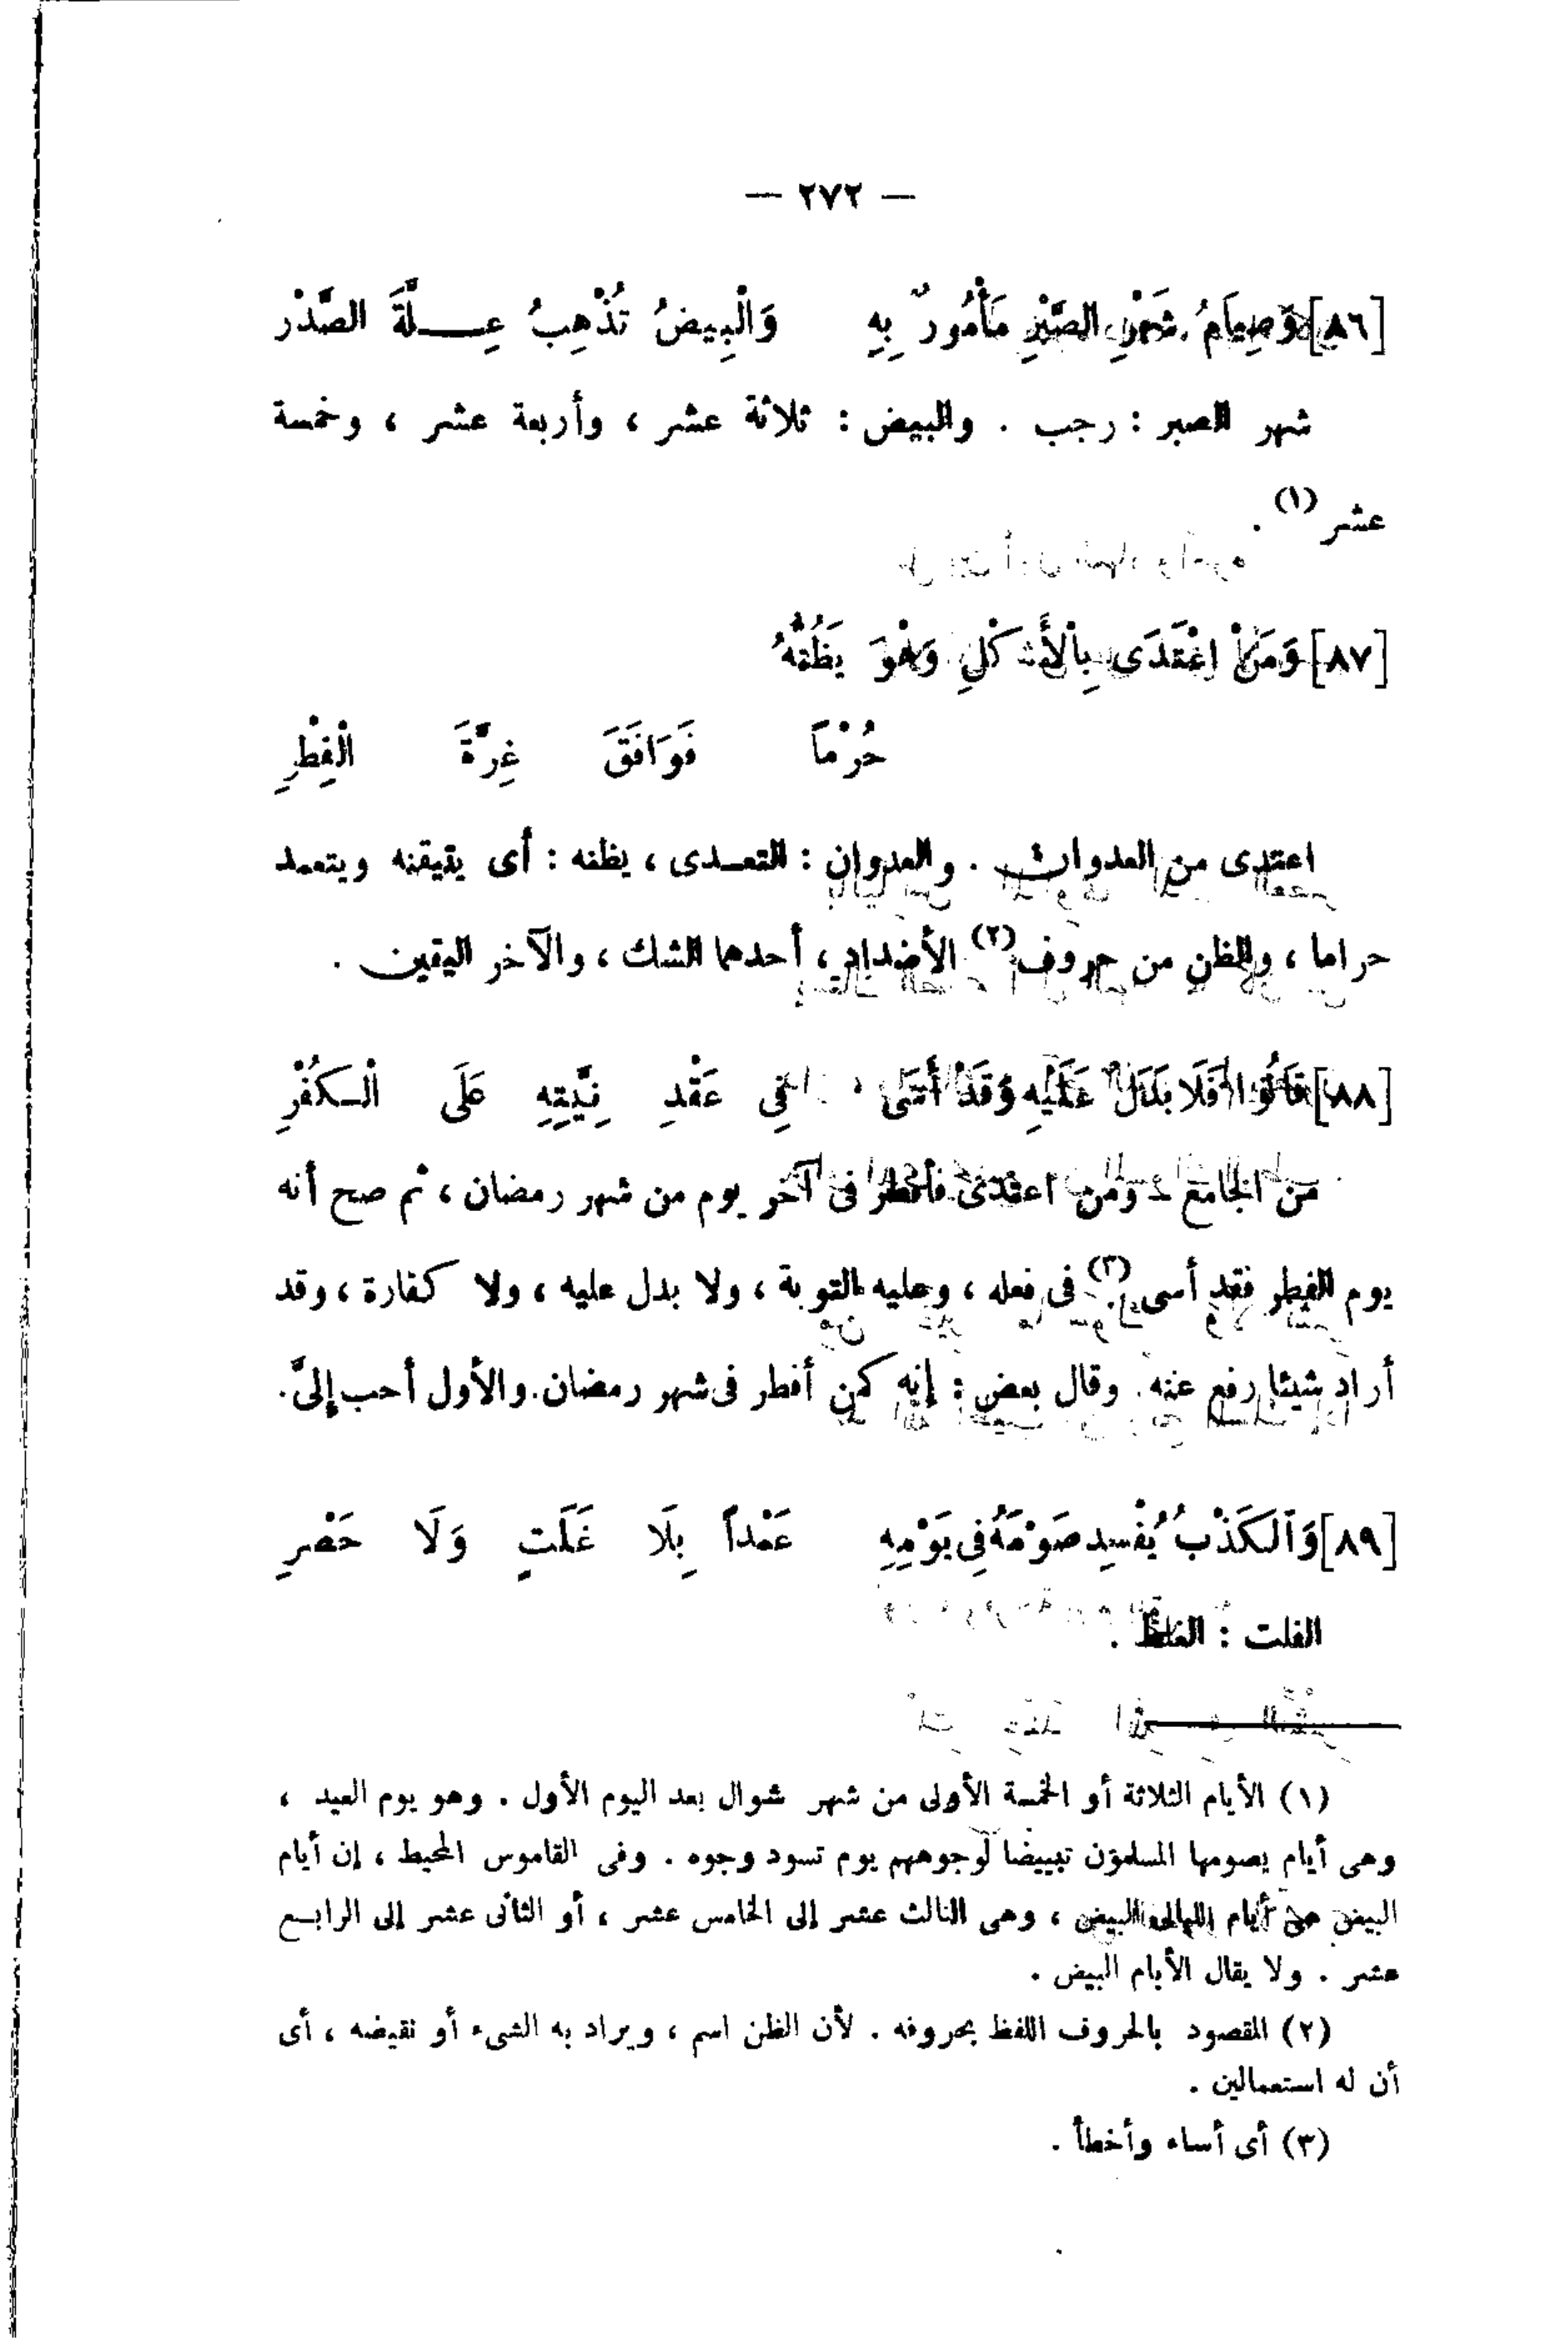 — ٢٧٢ —
[٨٦] وَصِيَامُ شَهْرِ الصَّبْرِ مَأْمُورٌ بِهِ وَالْبِيضُ تُذْهِبُ عِــلَّةَ الصَّدْرِ
شهر الصبر : رجب . والبيض : ثلاثة عشر ، وأربعة عشر ، وخمسة
عشر (١) .
[٨٧] وَمَنْ اعْتَدَى بِالْأَكْلِ وَهْوَ يَظُنُّهُ
حُرْماً فَوَافَقَ غِرَّةَ الْفِطْرِ
اعتدى من العدوان . والعدوان : التعـدى ، يظنه : أى يقيقنه ويتعمد
حراما ، والظن من حروف (٢) الأضداد ، أحدهما الشك ، والآخر اليقين .
[٨٨] قَالُوا فَلَا بَدَلَ عَلَيْهِ وَقَدْ أَسَى فِى عَقْدِ نِيَّتِهِ عَلَى الْـكُفْرِ
من الجامع ـ ومن اعتدى فأفطر فى آخر يوم من شهر رمضان ، ثم صح أنه
يوم الفطر فقد أسى (٣) فى فعله ، وعليه التوبة ، ولا بدل عليه ، ولا كفارة ، وقد
أراد شيئا رفع عنه . وقال بعض : إنه كمن أفطر فى شهر رمضان . والأول أحب إلىَّ .
[٨٩] وَالْكَذْبُ يُفْسِد صَوْمَهُ فِى يَوْمِهِ عَمْداً بِلَا غَلَتٍ وَلَا حَصْرِ
الغلت : الغلط .
(١) الأيام الثلاثة أو الخمسة الأولى من شهر شوال بعد اليوم الأول . وهو يوم العيد ،
وهى أيام يصومها المسلمون تبييضا لوجوههم يوم تسود وجوه . وفى القاموس المحيط ، إن أيام
البيض هى أيام الليالى البيض ، وهى الثالث عشر إلى الخامس عشر ، أو الثانى عشر إلى الرابـع
عشر . ولا يقال الأيام البيض .
(٢) المقصود بالحروف اللفظ بحروفه . لأن الظن اسم ، ويراد به الشىء أو نقيضه ، أى
أن له استعمالين .
(٣) أى أساء وأخطأ .